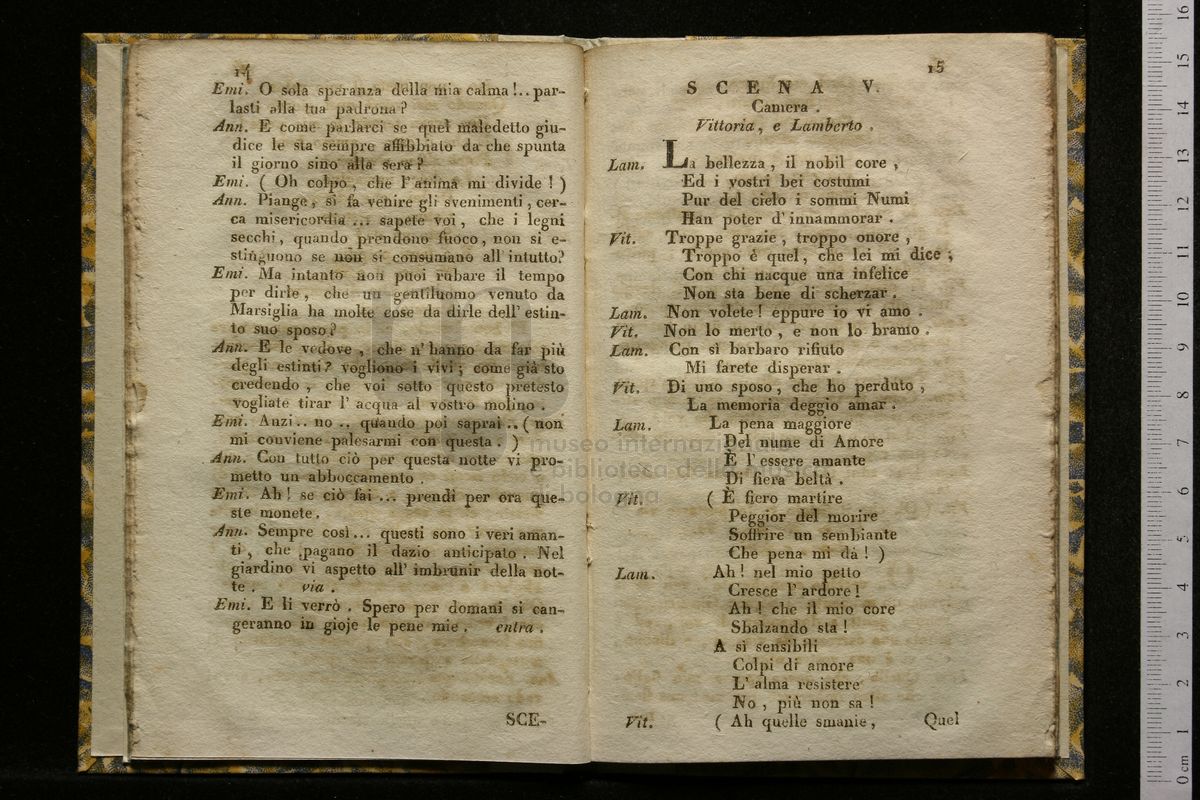 14
Emi. O sola speranza della mia calma!..par-
lasti alla tua padrona?
Ann. E come parlarci se quel maledetto giu-
dice le sta sempre affibbiato da che spunta
il giorno sino alla sera?
Emi. (Oh colpo, che l'anima mi divide!)
Ann. Piange, si fa venire gli svenimenti, cer-
ca misericordia ... sapete voi, che i legni
secchi, quando prendono fuoco, non si e-
stinguono se non si consumano all'intutto?
Emi. Ma intanto non puoi rubare il tempo
per dirle, che un gentiluomo venuto da
Marsiglia ha molte cose da dirle dell'estin-
to suo sposo?
Ann. E le vedove, che n'hanno da far più
degli estinti? vogliono i vivi; come già sto
credendo, che voi sotto questo pretesto
vogliate tirar l'acqua al vostro molino.
Emi. Anzi.. no .. quando poi saprai .. (non
mi conviene palesarmi con questa.)
Ann. Con tutto ciò per questa notte vi pro-
metto un abboccamento.
Emi. Ah! se ciò fai ... prendi per ora que-
ste monete.
Ann. Sempre così... questi sono i veri aman-
ti, che pagano il dazio anticipato. Nel
giardino vi aspetto all'imbrunir della not-
te. via.
Emi. E lì verrò. Spero per domani si can-
geranno in gioje le pene mie. entra.
SCE-
15
SCENA V.
Camera.
Vittoria, e Lamberto.
Lam. La bellezza, il nobil core,
Ed i vostri bei costumi
Pur del cielo i sommi Numi
Han poter d'innammorar.
Vit. Troppe grazie, troppo onore,
Troppo è quel, che lei mi dice;
Con chi nacque una infelice
Non sta bene di scherzar.
Lam. Non volete! eppure io vi amo.
Vit. Non lo merto, e non lo bramo.
Lam. Con sì barbaro rifiuto
Mi farete disperar.
Vit. Di uno sposo, che ho perduto,
La memoria deggio amar.
Lam. La pena maggiore
Del nume di Amore
È l'essere amante
Di fiera beltà.
Vit. (È fiero martire
Peggior del morire
Soffrire un sembiante
Che pena mi dà!)
Lam. Ah! nel mio petto
Cresce l'ardore!
Ah! che il mio core
Sbalzando sta!
A sì sensibili
Colpi di amore
L'alma resistere
No, più non sa!
Vit. (Ah quelle smanie,
Quel
museo internazionale
e biblioteca della musica
bologna
0 cm 1 2 3 4 5 6 7 8 9 10 11 12 13 14 15 16